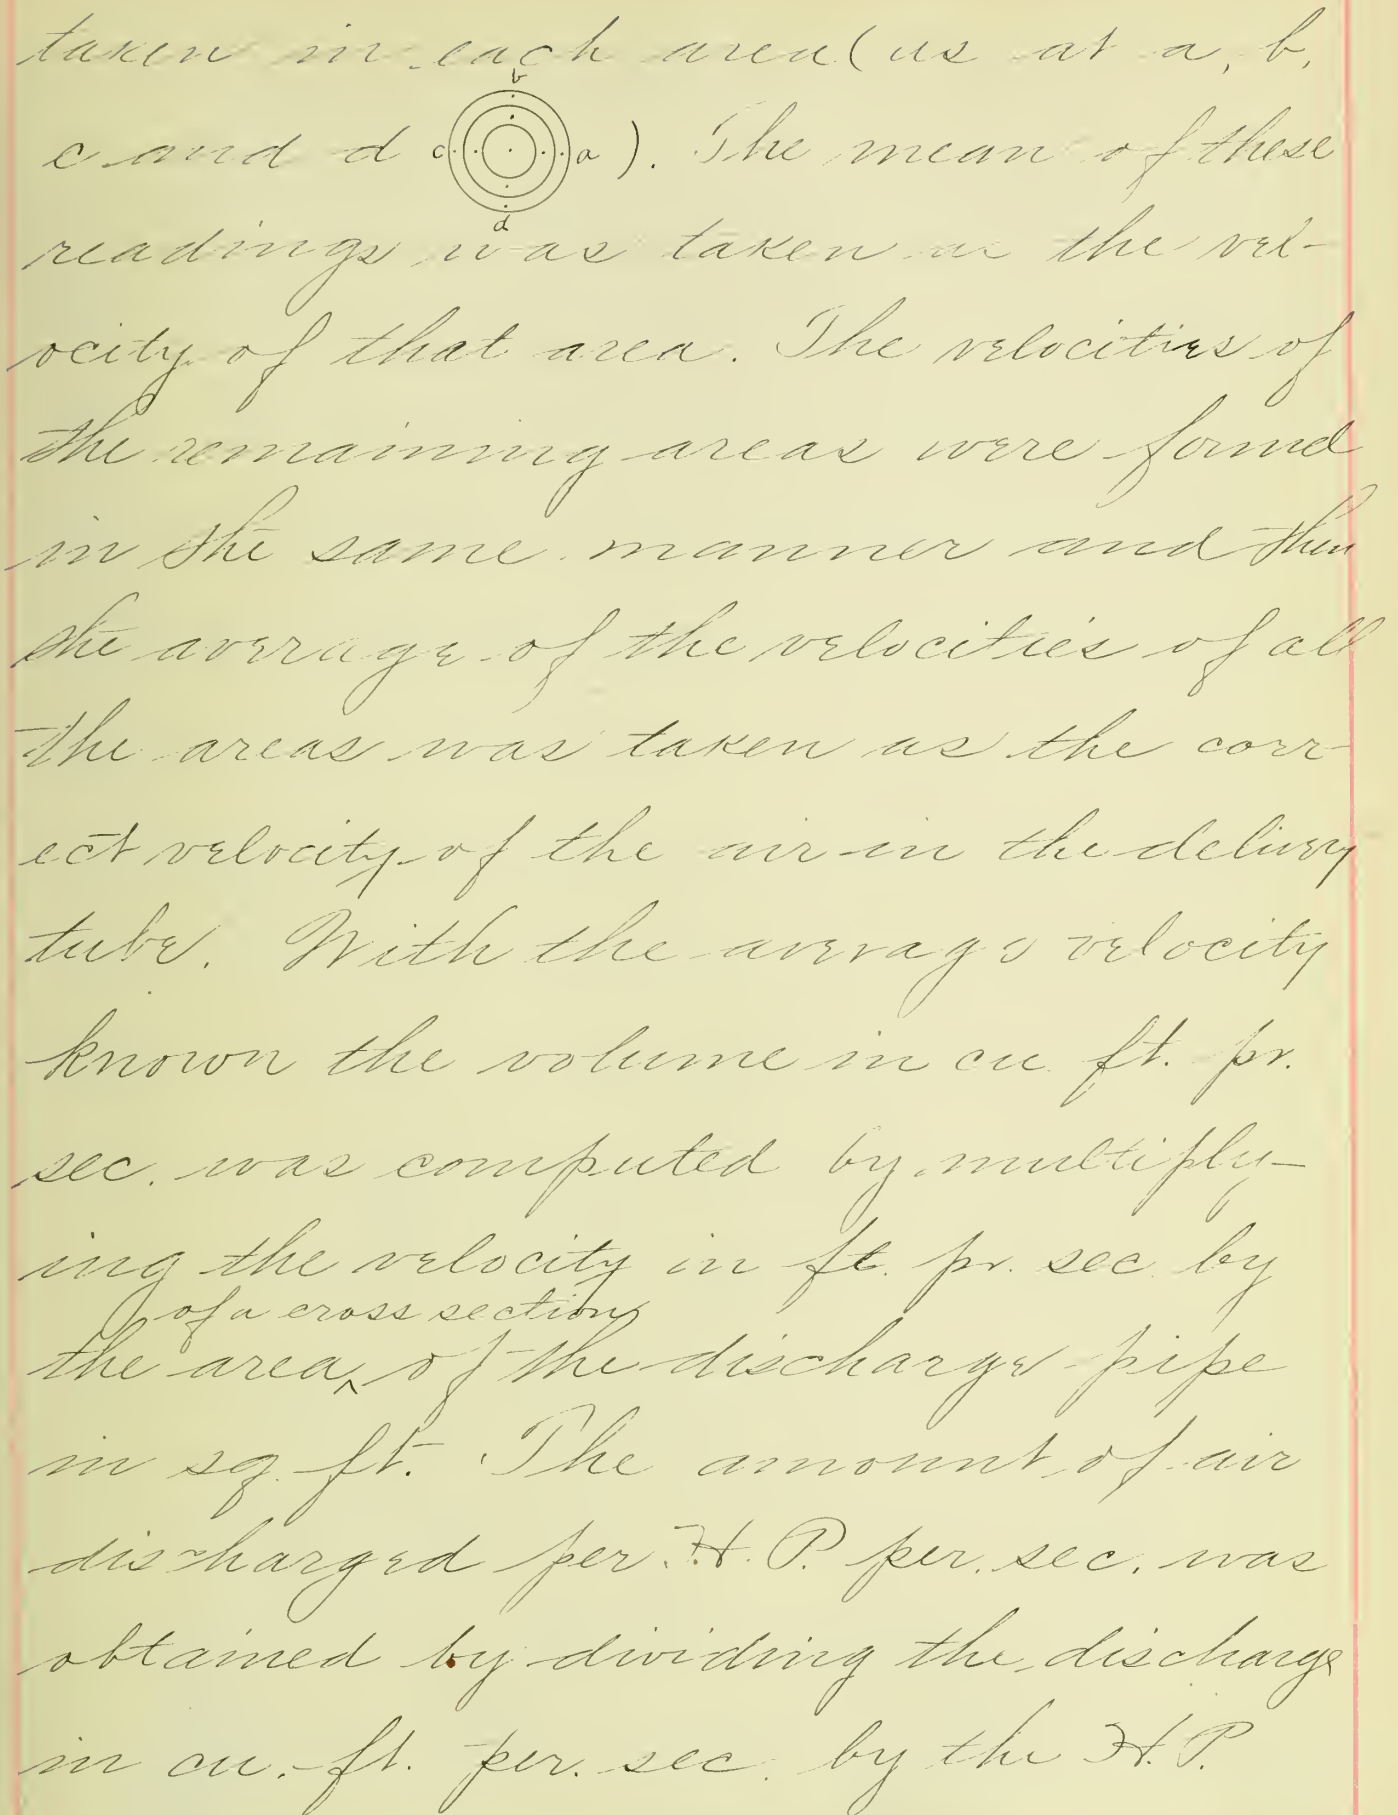 taken in each area (as at a, b,
b
c and d c a ). The mean of these
d
readings was taken as the vel-
ocity of that area. The velocities of
the remaining areas were found
in the same manner and then
the average of the velocities of all
the areas was taken as the corr-
ect velocity of the air in the delivery
tube. With the average velocity
known the volume in cu ft. pr.
sec. was computed by multiply-
ing the velocity in ft. pr. sec by
of a cross section
the area ‸ of the discharge pipe
in sq ft. The amount of air
discharged per H.P. per. sec. was
obtained by dividing the discharge
in cu. ft. per. sec. by the H.P.